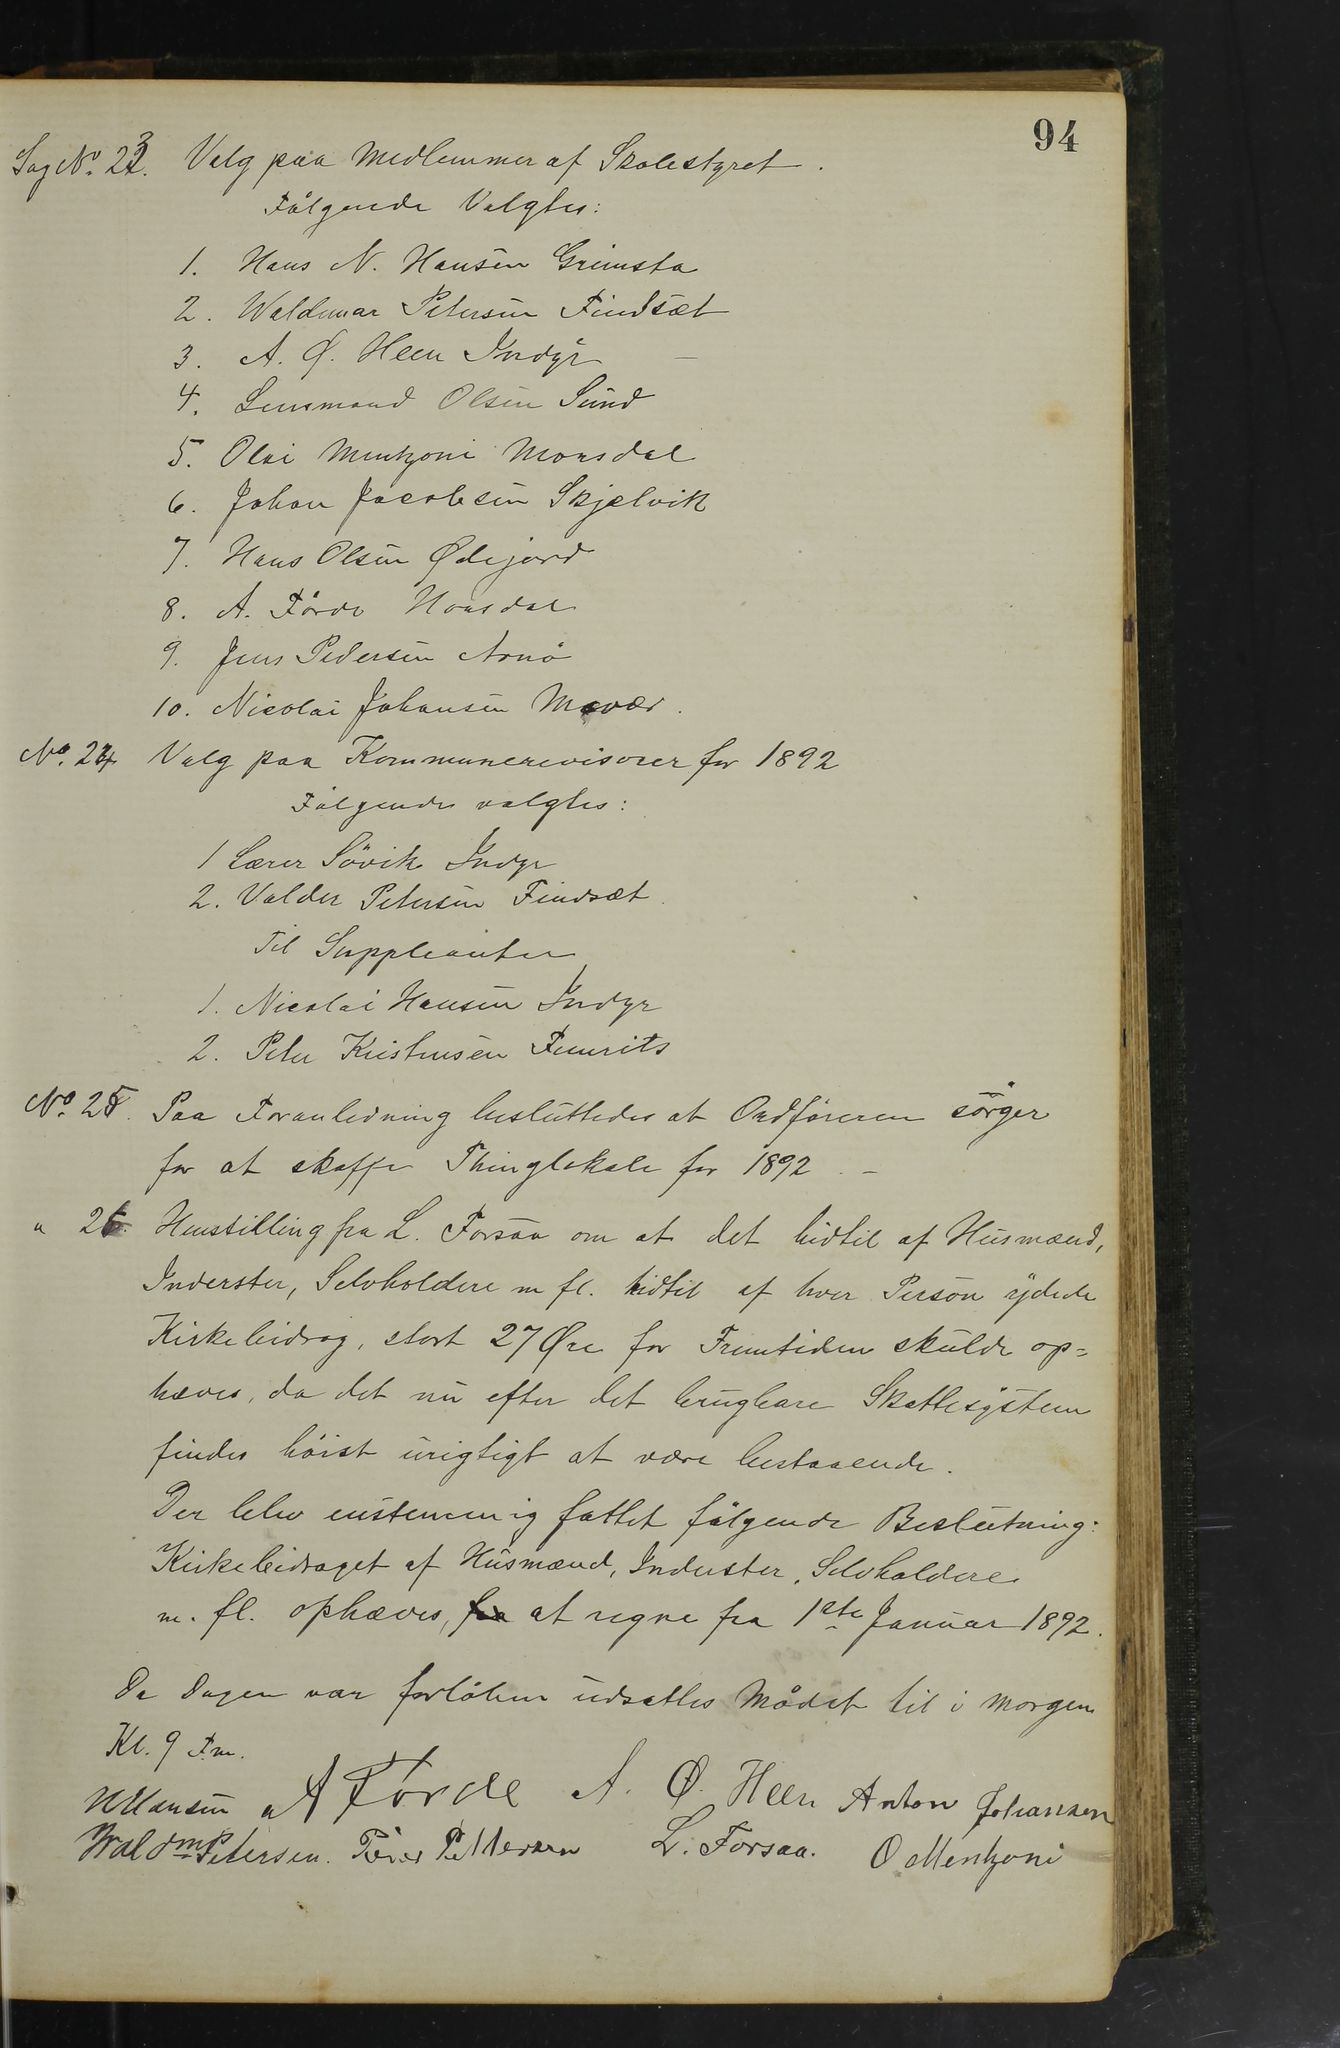 94
Sag No. 23. Valg paa Medlemmer af Skolestyret.
Følgende Valgtes:
1. Hans N. Hansen Grimsta
2. Waldemar Petersen Findsæt
3. A. Ø. Heen Indyr —
4. Lensmand Olsen Sund
5. Olai Mentzoni Morsdal
6. Johan Jacobsen Skjelvik
7. Hans Olsen Ødejord
8. A. Förde Horsdal
9. Jens Pedersen Arnö
10. Nicolai Johansen Mevær.
No. 24 Valg paa Kommunerevisorer for 1892
Følgende valgtes:
1 Lærer Sövik Indyr
2. Valder Petersen Findsæt.
Til Suppleanter
1. Nicolai Hansen Indyr
2. Peter Kristensen
No. 25. Paa Foranledning besluttedes at Ordföreren sörger
for at skaffe Thinglokale for 1892. —
" 26. Henstilling fra L. Forsaa om at det hidtil af Husmænd,
Inderster, Selvholdere m fl. hidtil af hver Person ydede
Kirkebidrag, stort 27 Øre for Fremtiden skulde op=
hæves, da det nu efter det brugbare Skattesystem
findes höist urigtigt at være bestaaende.
Der blev enstemmig fattet fölgende Beslutning:
Kirkebidraget af Husmænd, Inderster, Selvholdere
m. fl. ophæves, fra at regne fra 1ste Januar 1892.
Da Dagen var forløben udsattes Mödet til i Morgen
Kl. 9 Fm.
HNHansen A Förde A. Ø. Heen Anton Johansen
Waldm Petersen. Peder Pettersen L. Forsaa. O Mentzoni